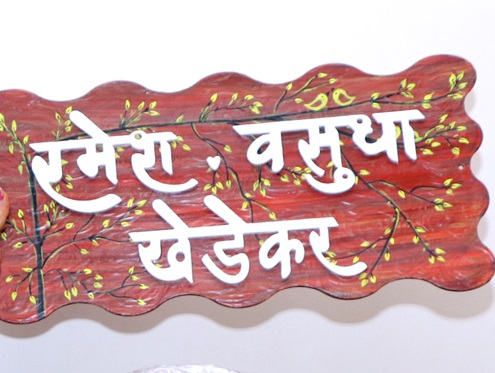 रमेश. वसुधा
खेडेकर